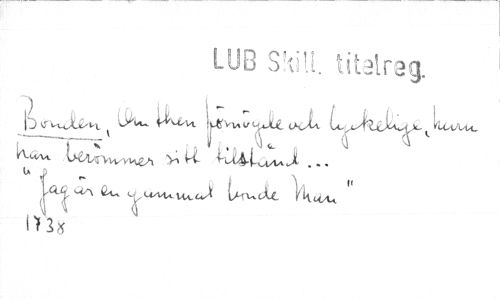 LUB Skill. titelreg.
Bonden, Om then förnögde och lyckelige, huru
han berömmer sitt tilstånd...
"Jag är en gammal bonde Man"
1738